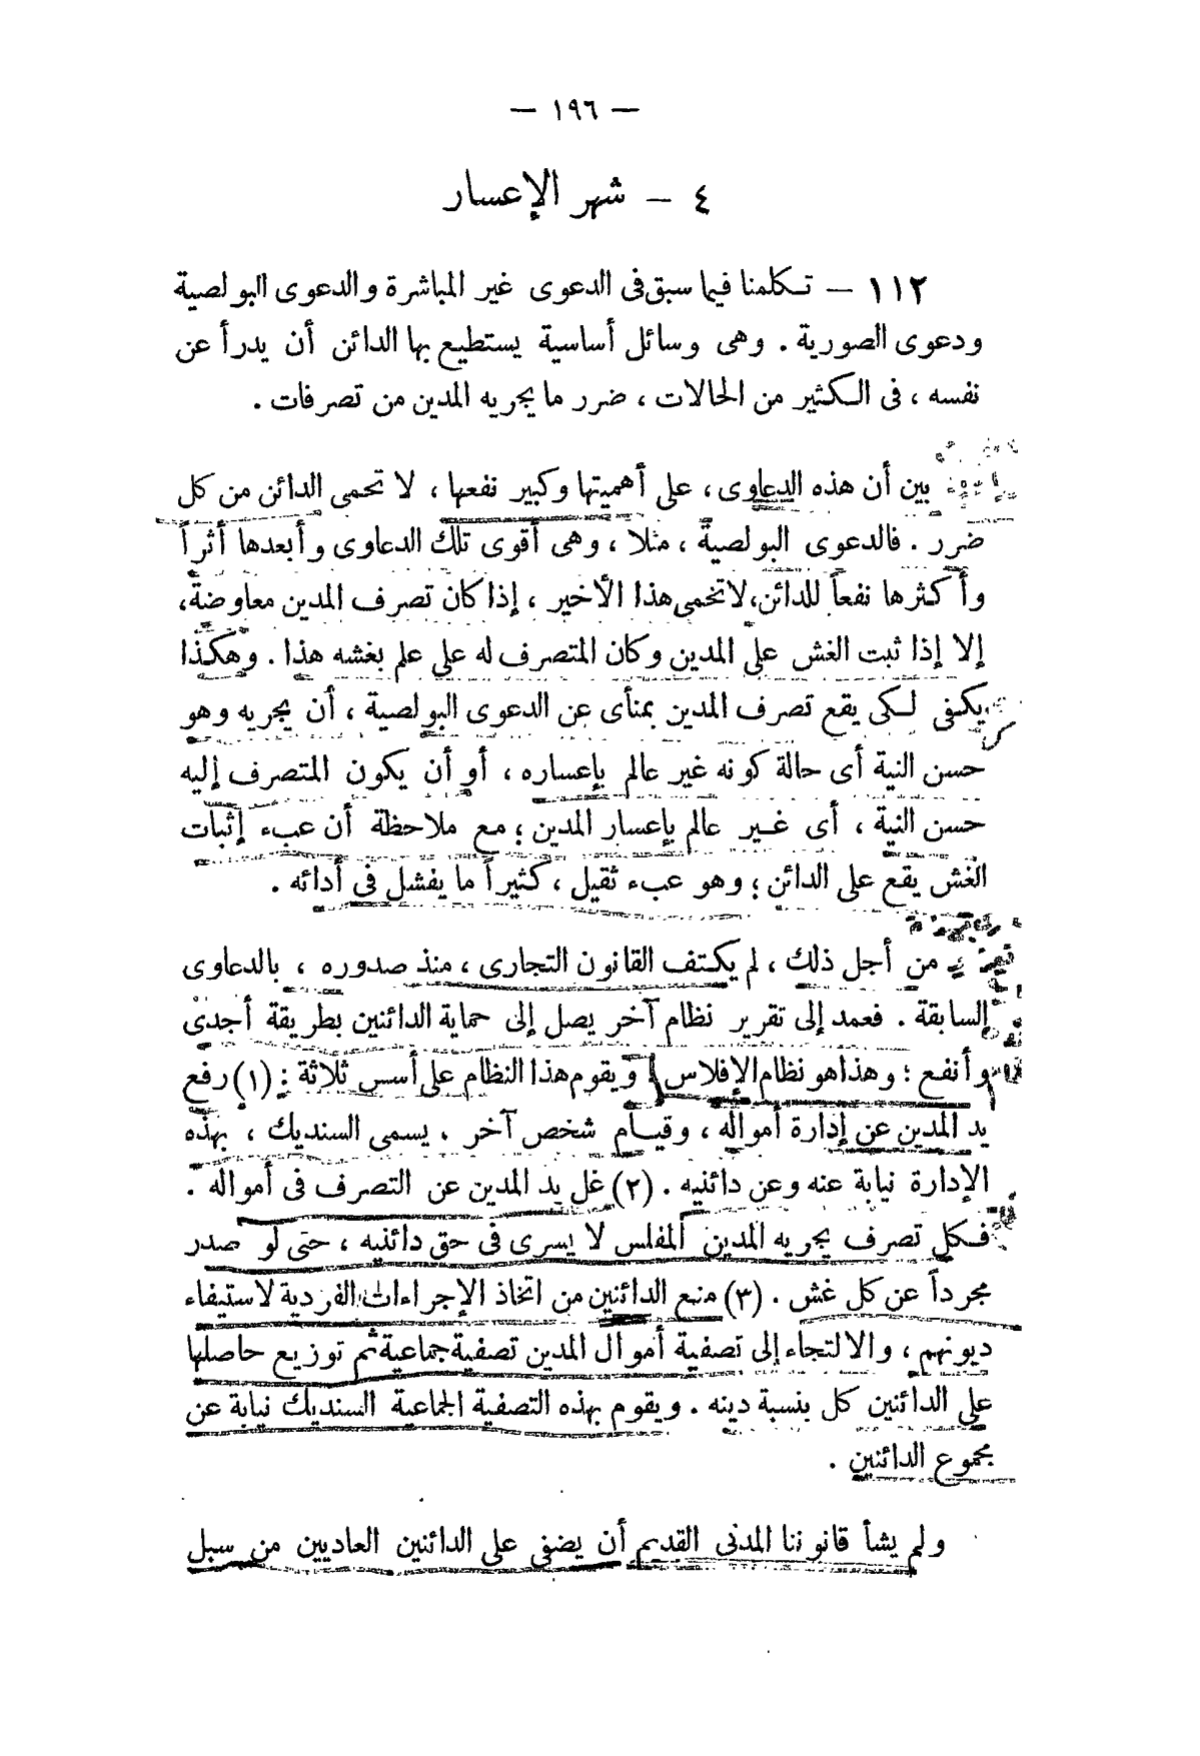 — ١٩٦ —
٤ — شهر الإعسار
١١٢ — تكلمنا فيما سبق فى الدعوى غير المباشرة والدعوى البولصية
ودعوى الصورية . وهى وسائل أساسية يستطيع بها الدائن أن يدرأ عن
نفسه ، فى الكثير من الحالات ، ضرر ما يجريه المدين من تصرفات .
بين أن هذه الدعاوى ، على أهميتها وكبير نفعها ، لا تحمى الدائن من كل
ضرر . فالدعوى البولصية ، مثلا ، وهى أقوى تلك الدعاوى وأبعدها أثراً
وأكثرها نفعاً للدائن، لا تحمى هذا الأخير ، إذا كان تصرف المدين معاوضة،
إلا إذا ثبت الغش على المدين وكان المتصرف له على علم بغشه هذا . وهكذا
يكفى لكى يقع تصرف المدين بمنأى عن الدعوى البولصية ، أن يجريه وهو
حسن النية أى حالة كونه غير عالم بإعساره ، أو أن يكون المتصرف إليه
حسن النية ، أى غير عالم بإعسار المدين ؛ مع ملاحظة أن عبء إثبات
الغش يقع على الدائن ؛ وهو عبء ثقيل ، كثيراً ما يفشل فى أدائه .
من أجل ذلك ، لم يكتف القانون التجارى ، منذ صدوره ، بالدعاوى
السابقة . فعمد إلى تقرير نظام آخر يصل إلى حماية الدائنين بطريقة أجدى
وأنفع ؛ وهذا هو نظام الإفلاس . ويقوم هذا النظام على أسس ثلاثة : (١) رفع
يد المدين عن إدارة أمواله ، وقيام شخص آخر . يسمى السنديك ، بهذه
الإدارة نيابة عنه وعن دائنيه . (٢) غل يد المدين عن التصرف فى أمواله .
فكل تصرف يجريه المدين المفلس لا يسرى فى حق دائنيه ، حتى لو صدر
مجرداً عن كل غش . (٣) منع الدائنين من اتخاذ الإجراءات الفردية لاستيفاء
ديونهم ، والالتجاء إلى تصفية أموال المدين تصفية جماعية ثم توزيع حاصلها
على الدائنين كل بنسبة دينه . ويقوم بهذه التصفية الجماعية السنديك نيابة عن
مجموع الدائنين .
ولم يشأ قانوننا المدنى القديم أن يضفى على الدائنين العاديين من سبل